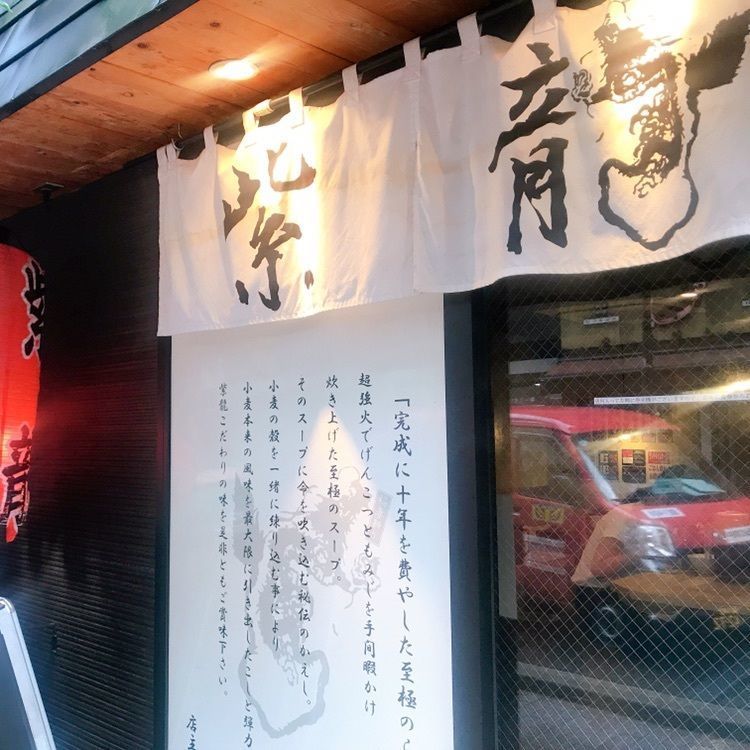 紫龍
紫龍
「完成に十年を費やした至極の
超強火でげんこつともみじを手間暇かけ
炊き上げた至極のスープ。
そのスープに命を吹き込む秘伝のかえし。
小麦の殻を一緒に練り込む事により
小麦本来の風味を最大限に引き出したこしと弾力
紫龍こだわりの味を是非ともご賞味下さい。
店主